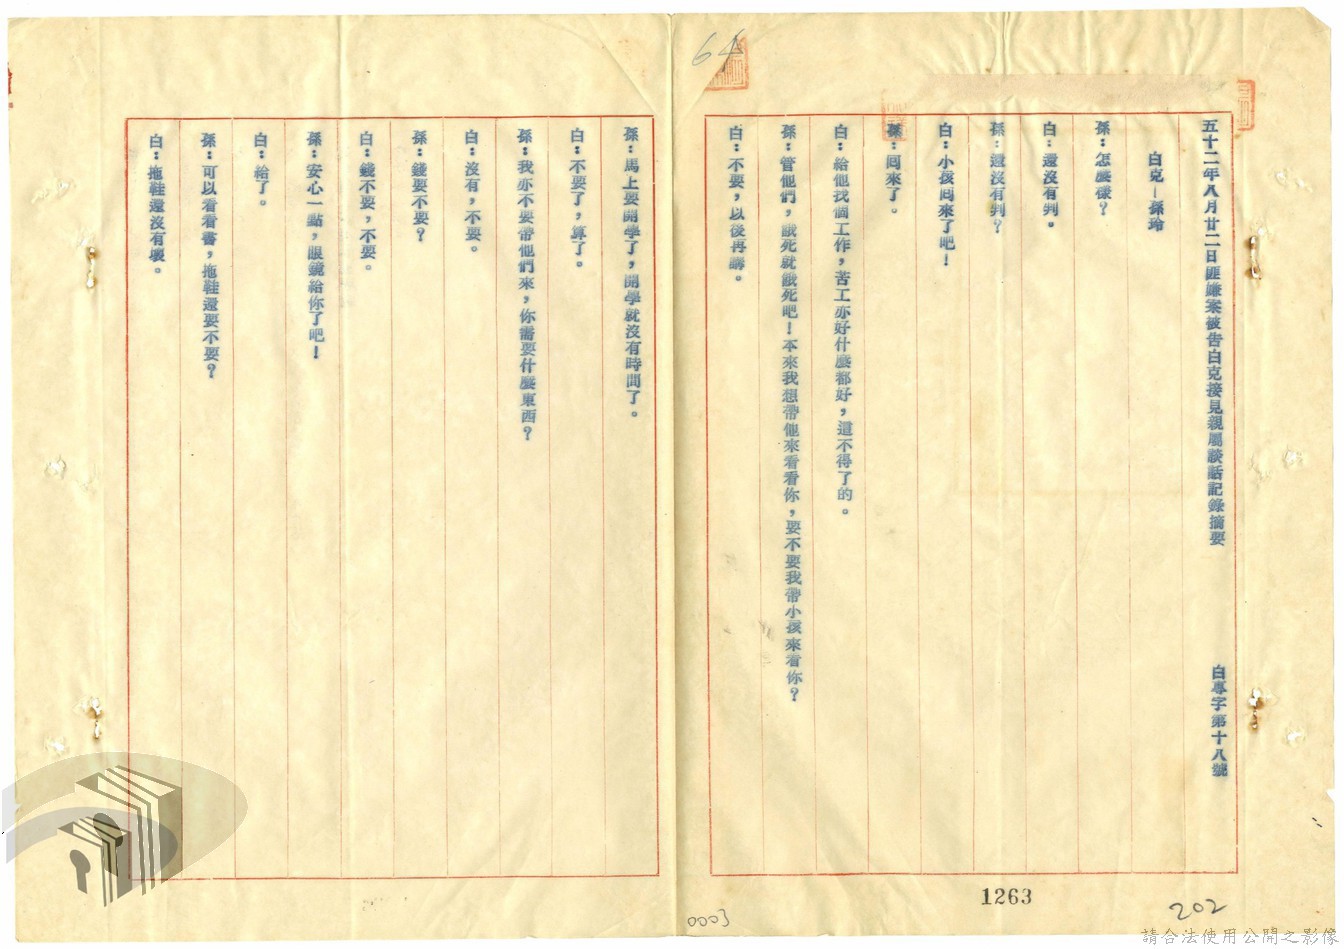 64
五十二年八月廿二日匪嫌案被告白克接見親屬談話記錄摘要　白專字第十八號
白克—孫玲
孫：怎麼樣？
白：還沒有判。
孫：還沒有判？
白：小孩回來了吧！
孫：回來了。
白：給他找個工作，苦工亦好什麼都好，這不得了的。
孫：管他們，餓死就餓死吧！本來我想帶他來看看你，要不要我帶小孩來看你？
白：不要，以後再講。
孫：馬上要開學了，開學就沒有時間了。
白：不要了，算了。
孫：我亦不要帶他們來，你需要什麼東西？
白：沒有，不要。
孫：錢要不要？
白：錢不要，不要。
孫：安心一點，眼鏡給你了吧！
白：給了。
孫：可以看看書，拖鞋還要不要？
白：拖鞋還沒有壞。
1263
202
0003
請合法使用公開之影像